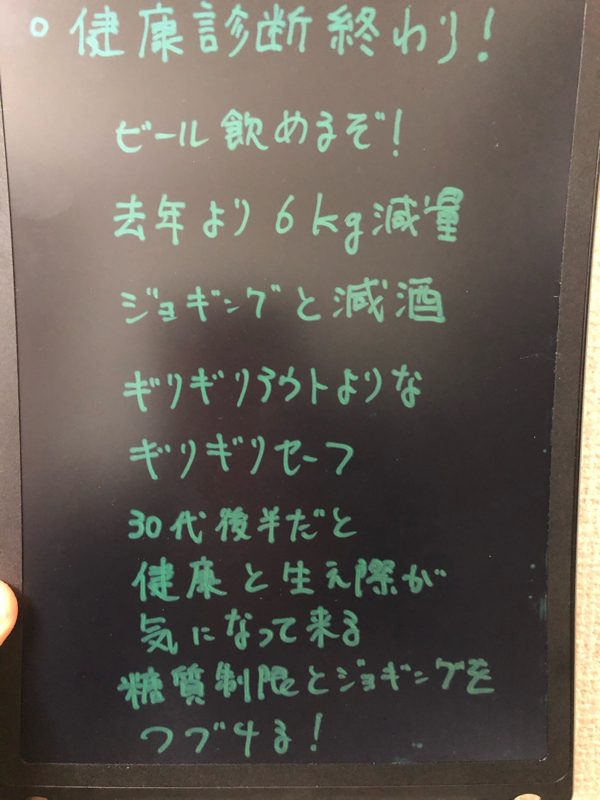 ○健康診断終わり!
ビール飲めるぞ!
去年より6kg減量
ジョギングと減酒
ギリギリアウトよりな
ギリギリセーフ
30代後半だと
健康と生え際が
気になって来る
糖質制限とジョギングを
つづける!